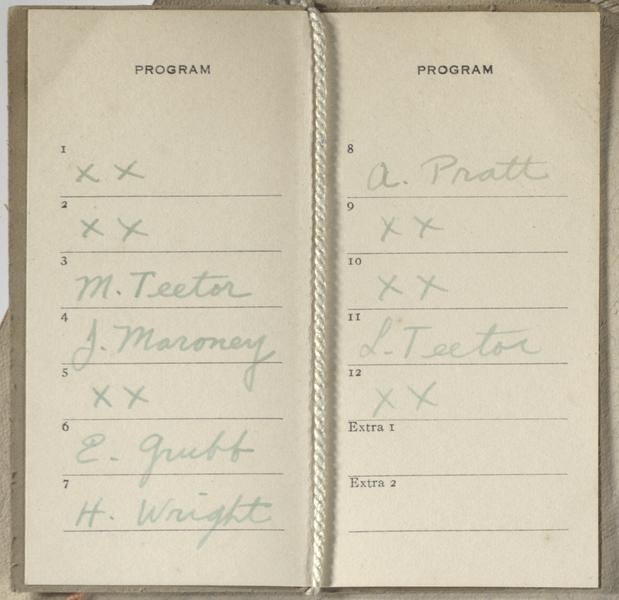 PROGRAM
1
x x
2
x x
3
M. Teetor
4
J. Maroney
5
x x
6
E. Grubb
7
H. Wright
PROGRAM
8
A. Pratt
9
x x
10
x x
11
L. Teetor
12
x x
Extra 1
Extra 2